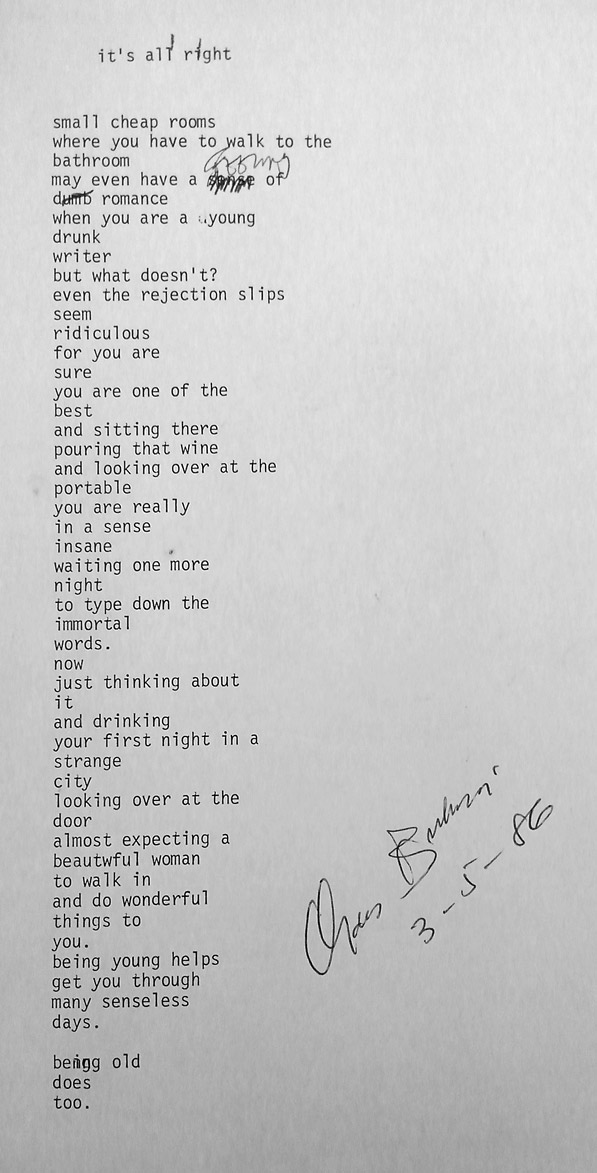 it's all right
small cheap rooms
where you have to walk to the
bathroom
may even have a of
dumb romance
when you are a young
drunk
writer
but what doesn't?
even the rejection slips
seem
ridiculous
for you are
sure
you are one of the
best
and sitting there
pouring that wine
and looking over at the
portable
you are really
in a sense
insane
waiting one more
night
to type down the
immortal
words.
now
just thinking about
it
and drinking
your first night in a
strange
city
looking over at the
door
almost expecting a
beautwful woman
to walk in
and do wonderful
things to
you.
being young helps
get you through
many senseless
days.
being old
does
too.
3-5-86